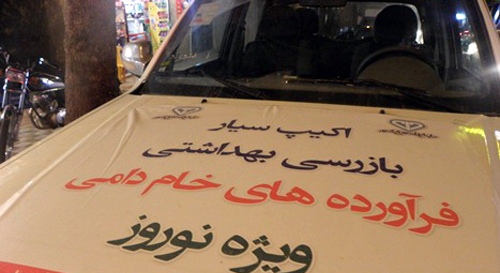 اکیپ سیار
بازرسی بهداشتی
فرآورده های خام دامی
ویژه نوروز